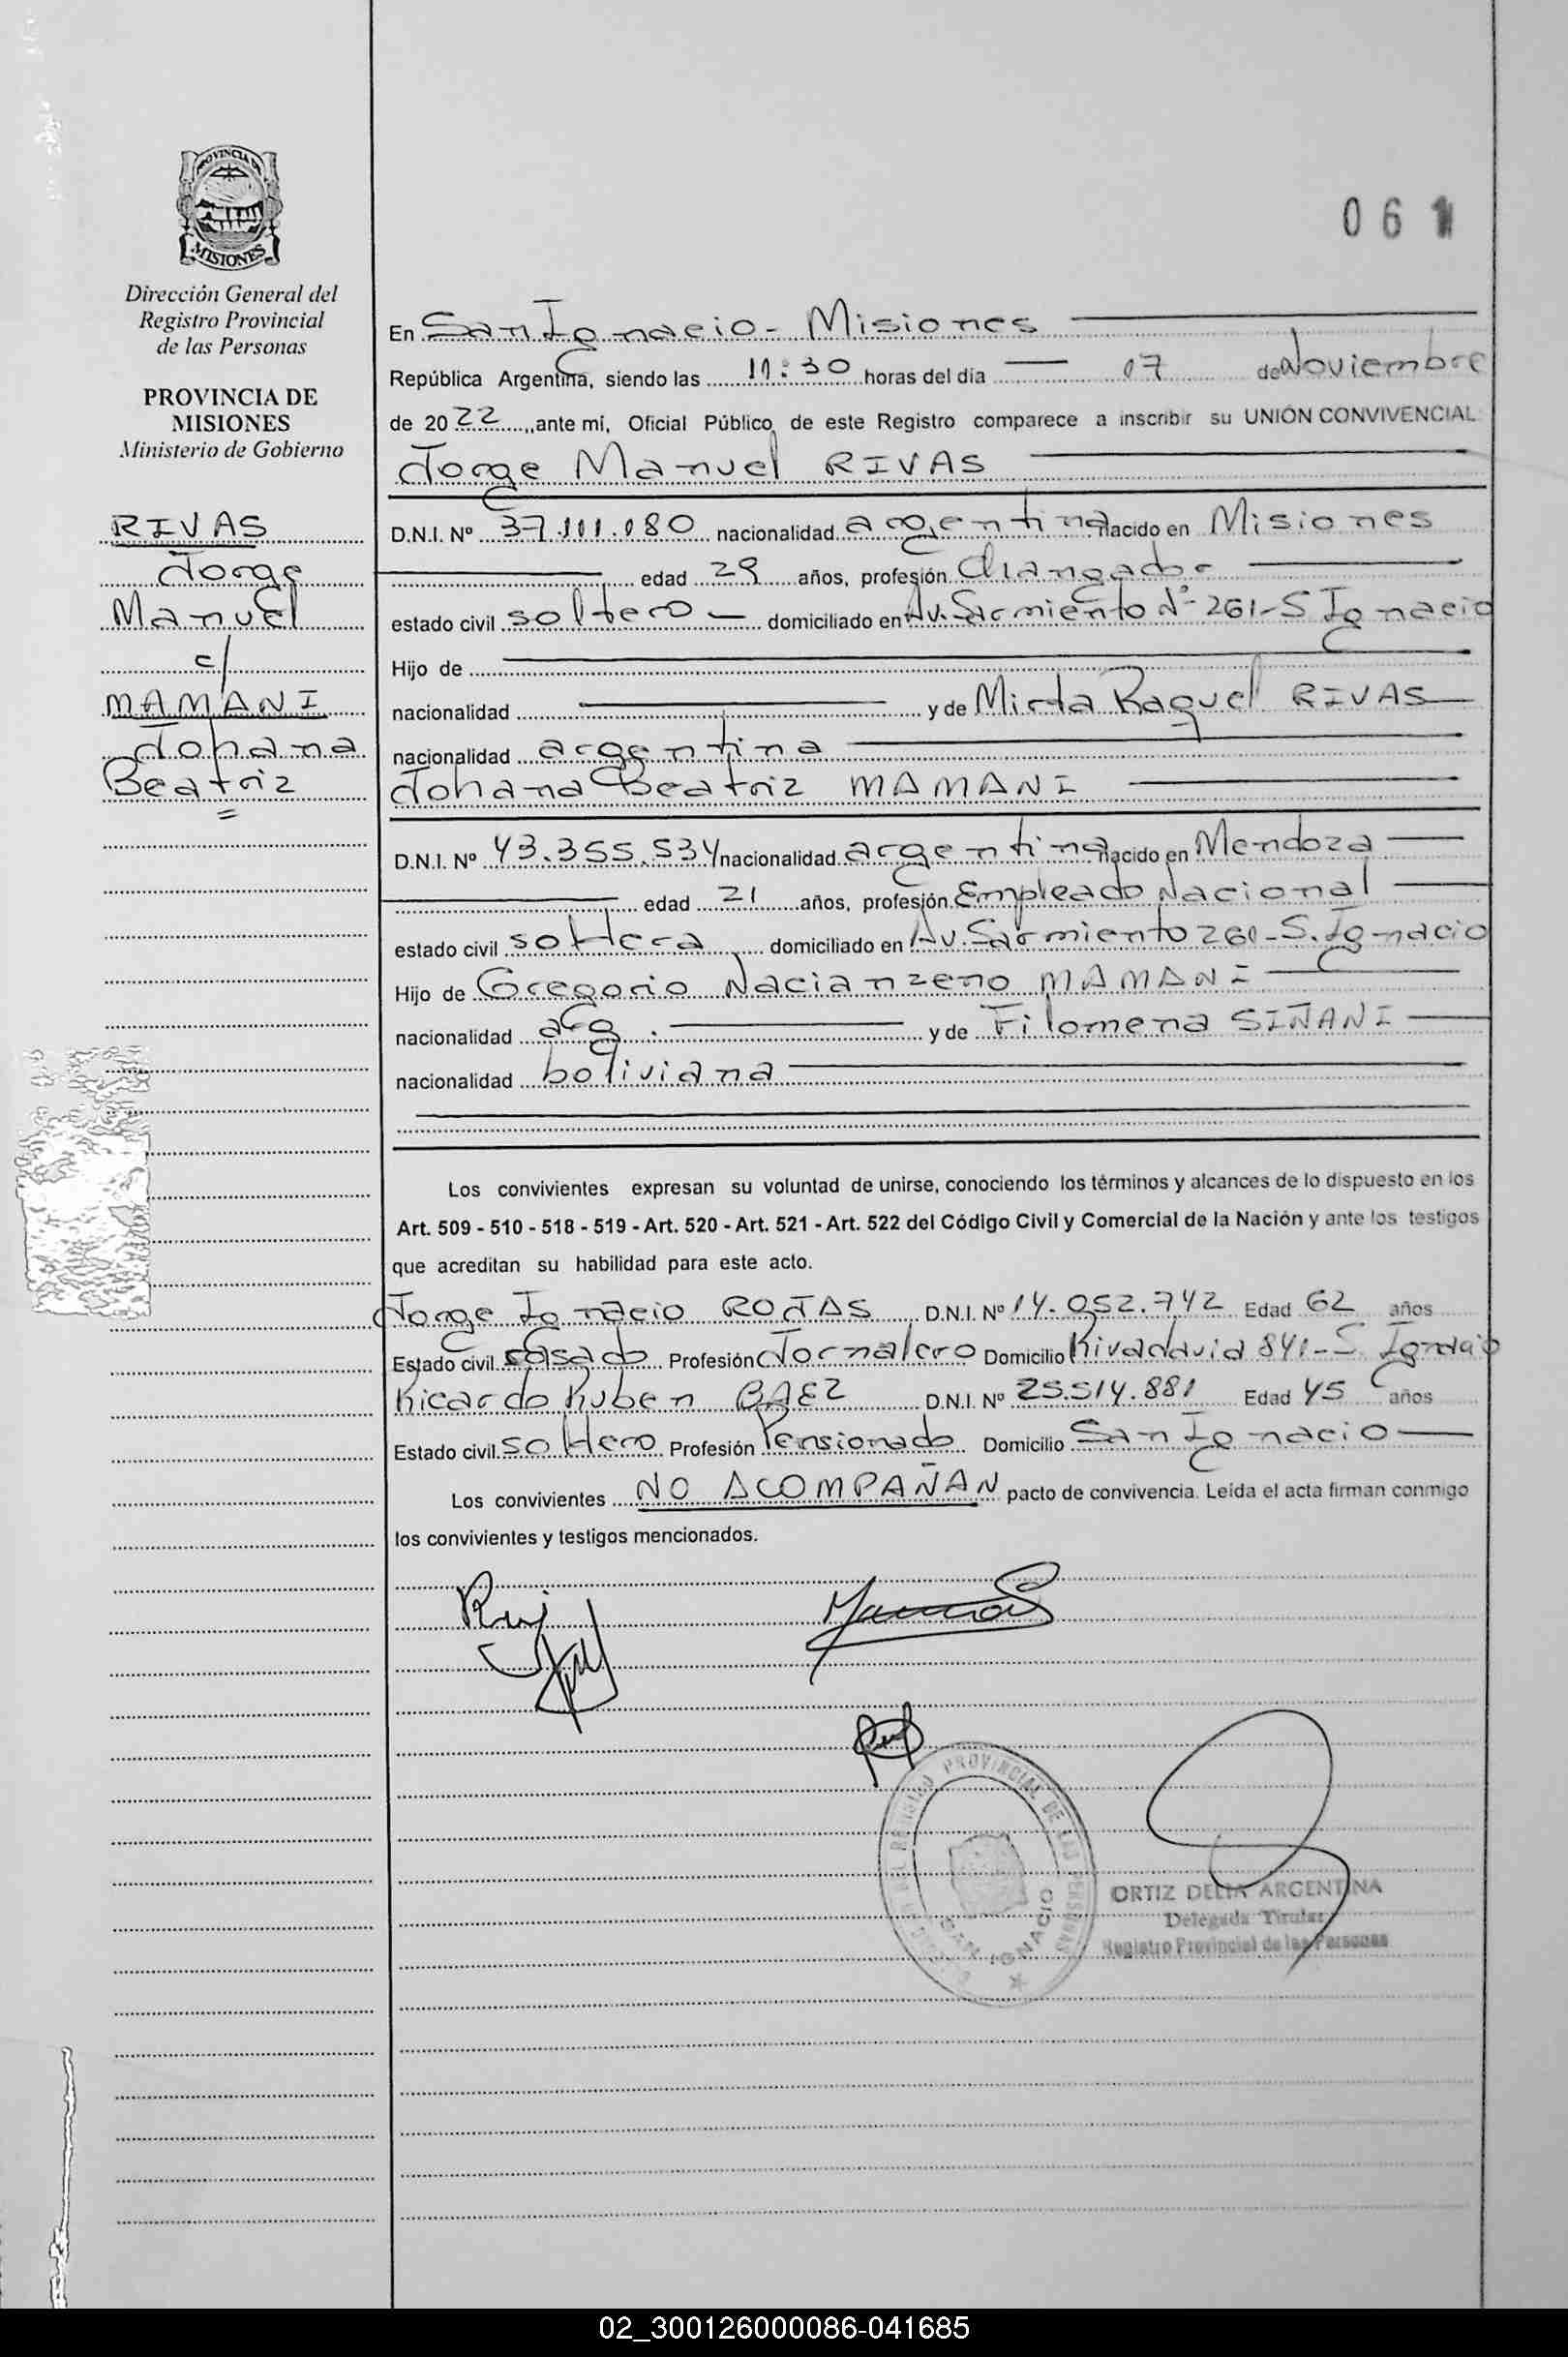 PROVINCIA DE
MISIONES
Dirección General del
Registro Provincial
de las Personas
PROVINCIA DE
MISIONES
Ministerio de Gobierno
RIVAS
Jorge
Manuel
c/
MAMANI
Johana
Beatriz
=
061
En San Ignacio - Misiones
República Argentina, siendo las 11:30 horas del día 07 de Noviembre
de 2022, ante mí, Oficial Público de este Registro comparece a inscribir su UNIÓN CONVIVENCIAL
Jorge Manuel RIVAS
D.N.I. Nº 37.111.080 nacionalidad argentina nacido en Misiones
edad 29 años, profesión Changador
estado civil soltero domiciliado en Av. Sarmiento Nº 261-S Ignacio
Hijo de
nacionalidad y de Mirta Raquel RIVAS
nacionalidad argentina
Johana Beatriz MAMANI
D.N.I. Nº 43.355.534 nacionalidad argentina nacido en Mendoza
edad 21 años, profesión Empleado Nacional
estado civil soltera domiciliado en Av. Sarmiento 260-S. Ignacio
Hijo de Gregorio Nacianzeno MAMANI
nacionalidad arg. y de Filomena SIÑANI
nacionalidad boliviana
Los convivientes expresan su voluntad de unirse, conociendo los términos y alcances de lo dispuesto en los
Art. 509 - 510 - 518 - 519 - Art. 520 - Art. 521 - Art. 522 del Código Civil y Comercial de la Nación y ante los testigos
que acreditan su habilidad para este acto.
Jorge Ignacio ROJAS D.N.I. Nº 14.052.742 Edad 62 años
Estado civil casado Profesión Jornalero Domicilio Rivadavia 841-S Ignacio
Ricardo Ruben BAEZ D.N.I. Nº 25.514.881 Edad 45 años
Estado civil soltero Profesión Pensionado Domicilio San Ignacio
Los convivientes NO ACOMPAÑAN pacto de convivencia. Leída el acta firman conmigo
los convivientes y testigos mencionados.
PROVINCIAL DE LAS PERSONAS
SAN IGNACIO
ORTIZ DELIA ARGENTINA
Delegada Titular
Registro Provincial de las Personas
02_300126000086-041685